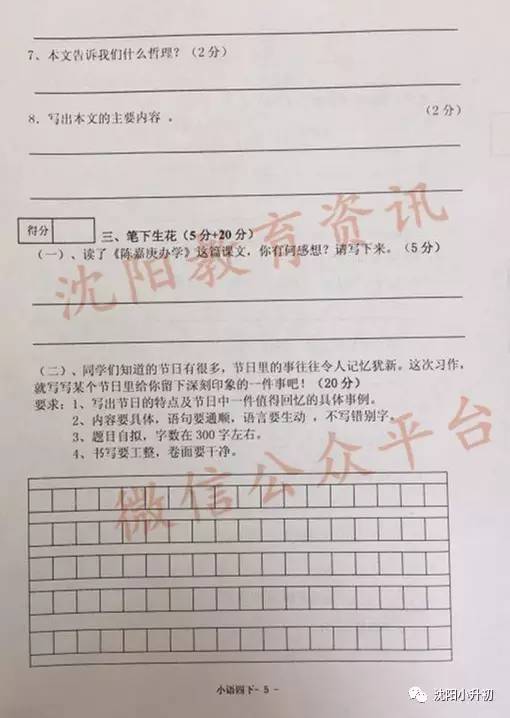 7、本文告诉我们什么哲理？（2分）
8．写出本文的主要内容 。 （2分）
得分
三、笔下生花（5分+20分）
（一）、读了《陈嘉庚办学》这篇课文，你有何感想？请写下来。（5分）
（二）、同学们知道的节日有很多，节日里的事往往令人记忆犹新。这次习作，
就写写某个节日里给你留下深刻印象的一件事吧！（20分）
要求：1、写出节日的特点及节日中一件值得回忆的具体事例。
2、内容要具体，语句要通顺，语言要生动 ，不写错别字。
3、题目自拟，字数在300字左右。
4、书写要工整，卷面要干净。
沈阳教育资讯
微信公众平台
小语四下- 5 -
沈阳小升初